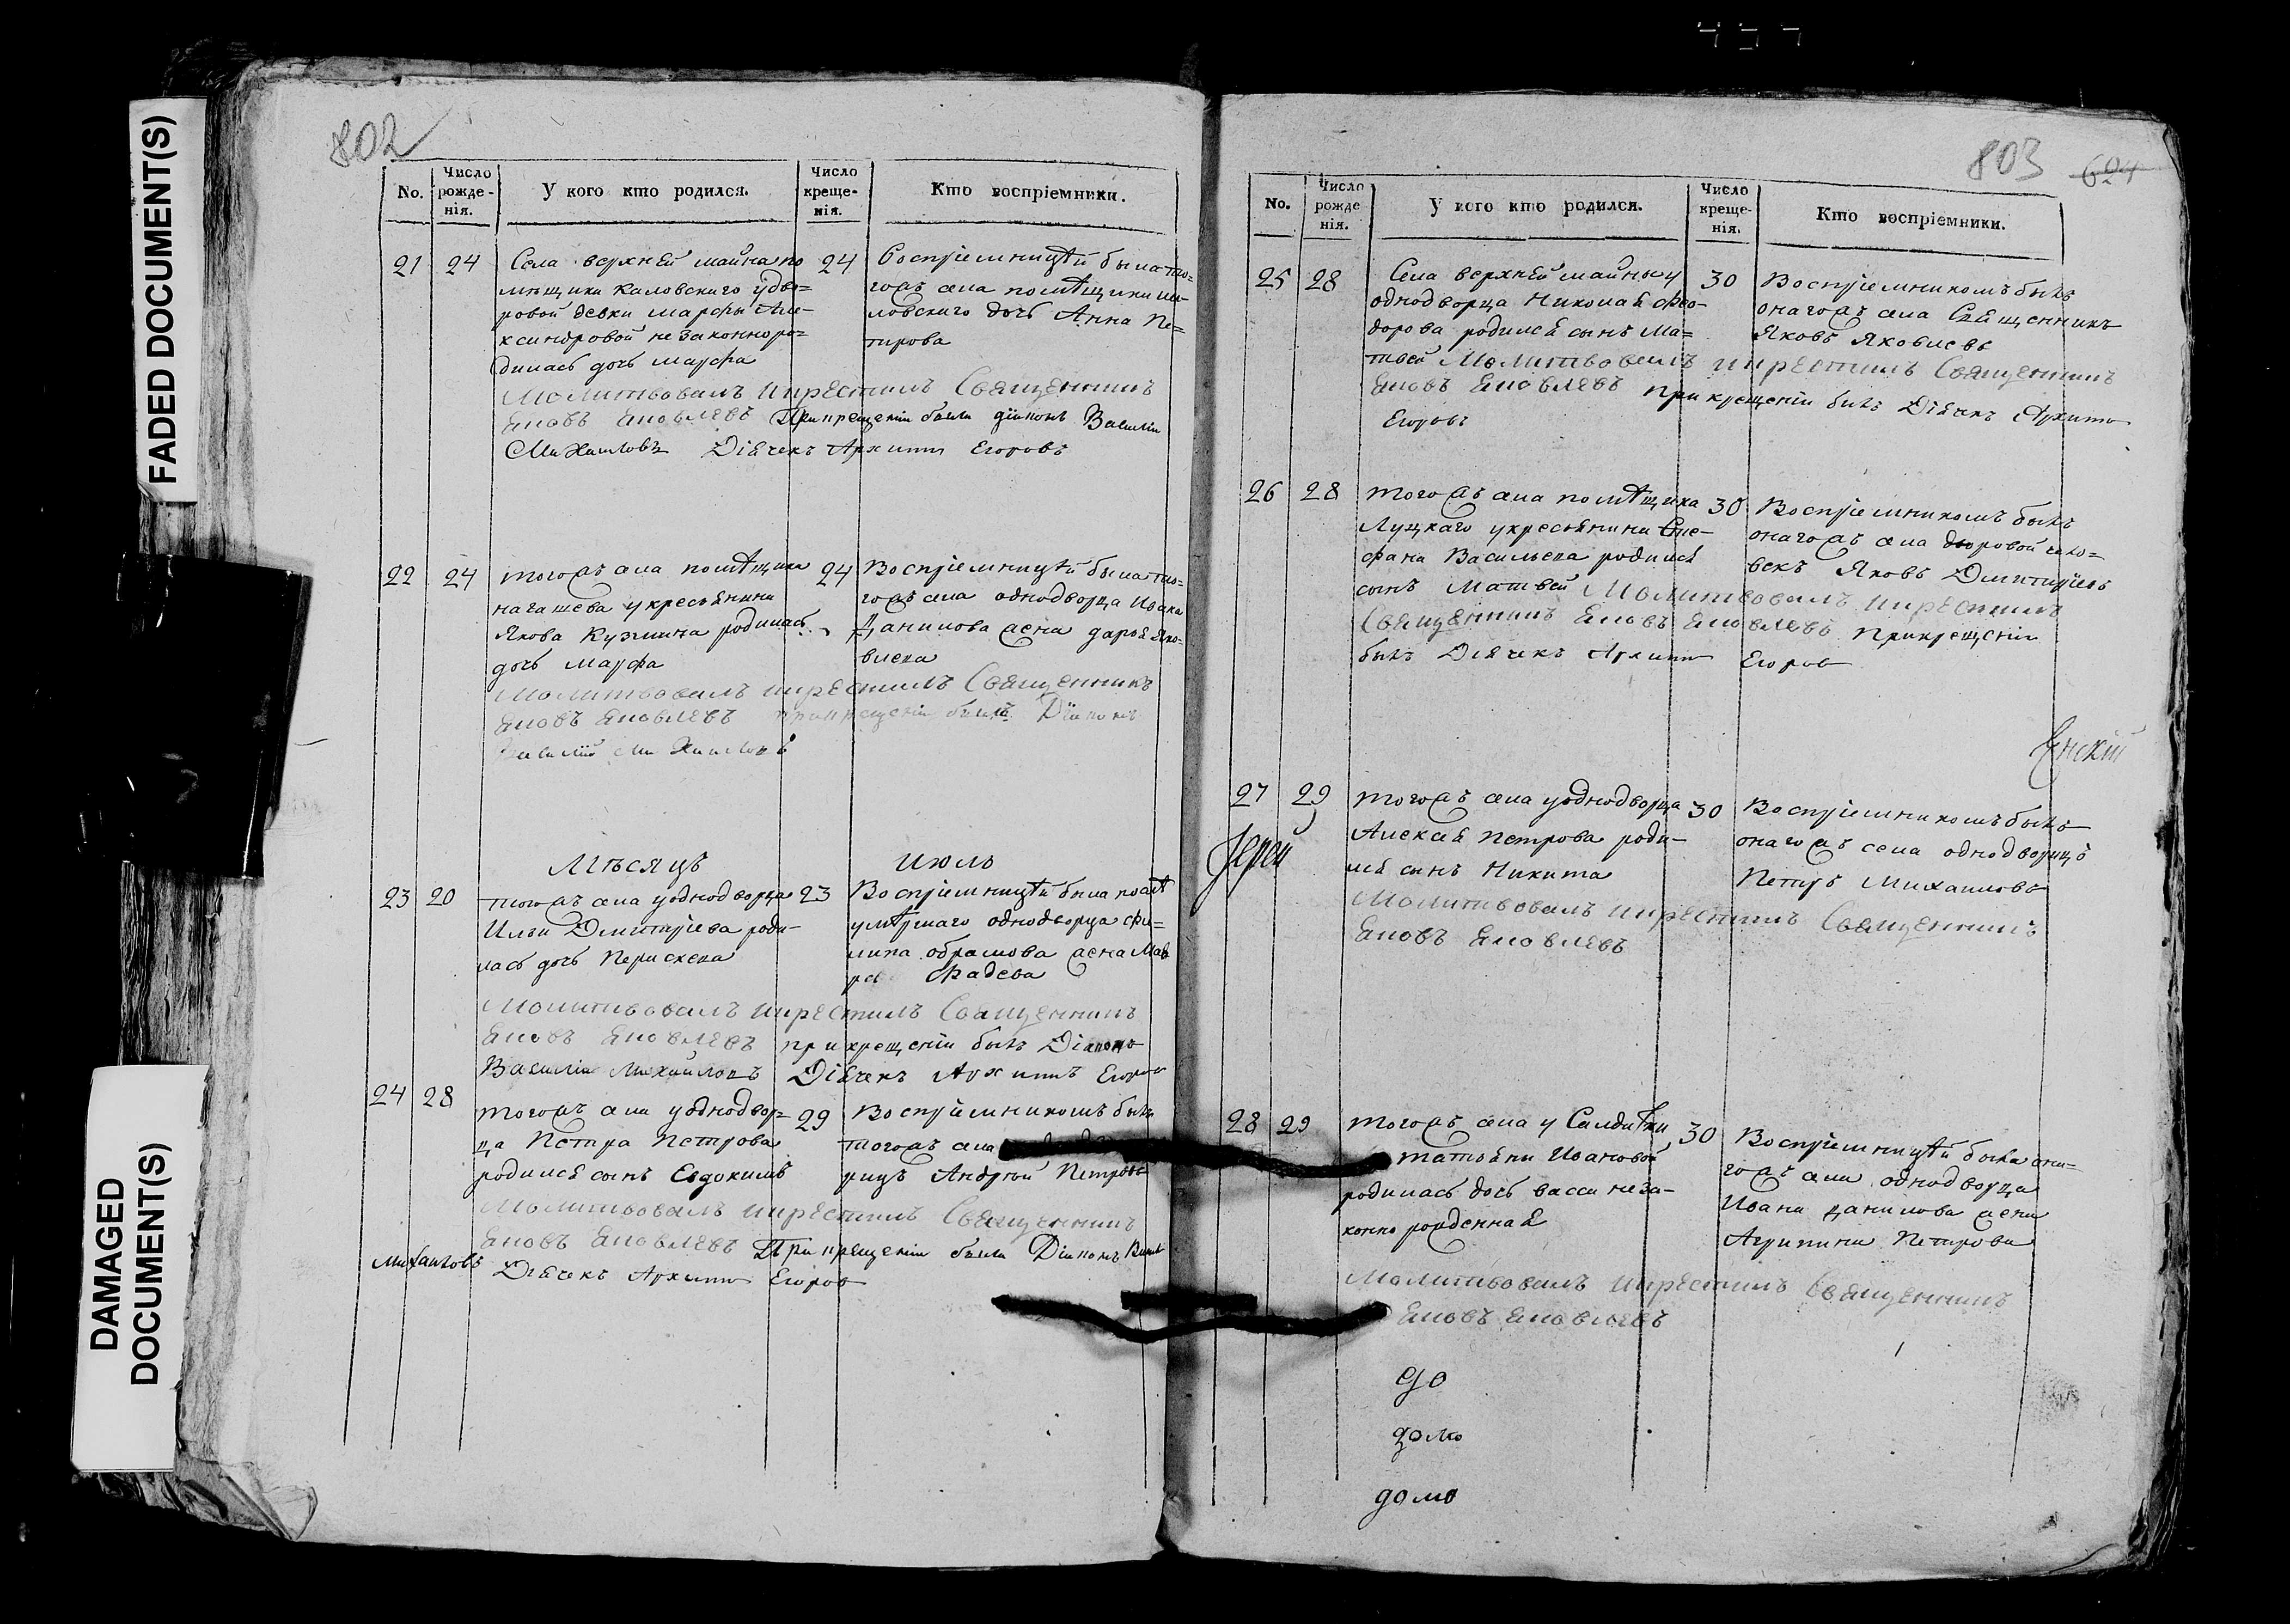 FADED DOCUMENT(S)
DAMAGED
DOCUMENT(S)
802
No.
Число рожденія.
У кого кто родился.
Число крещенія.
Кто воспріемники.
21 24
Села верхней майна по
мѣщика каловского удво=
ровой девки марфы Але=
ксандровой не законноро=
дилась дочь марфа
24
Воспріемницей была то=
гожъ села помѣщика ка=
ловскаго дочь Анна Пе=
трова
Молитвовалъ икрестилъ Священникъ
Яковъ Яковлевъ При крещеніи были діаконъ Василіи
Михаиловъ Дiячекъ Архипъ Егоровъ
22 24
тогожъ села помѣщика
нагашева укресьянина
Якова Кузмина родилась
дочь марфа
24
Воспріемницей была то=
гожъ села однодворца Ивана
Данилова жена дарья Яко=
влева
Молитвовалъ икрестилъ Священникъ
Яковъ Яковлевъ прикрещеніи былъ Діаконъ
Василій Михаиловъ
Мѣсяцъ Июль
23 20
тогожъ села уоднодворца
Ильи Дмитріева роди=
лась дочь Перискева
23
Воспріемницей была послѣ
умѣршаго однодворца фи=
липа абрамова жена Мав
ра Фадева
Молитвовалъ икрестилъ Священникъ
Яковъ Яковлевъ при крещеніи былъ Діаконъ
Василіи Михайловъ Дiячекъ Архипъ Егоровъ
24 28
тогожъ села уоднодвор=
ца Петра Петрова
родился сынъ Евдокимъ
29
Воспріемникомъ былъ
тогожъ села
рицъ Андрей Петровъ
Молитвовалъ икрестилъ Священникъ
Яковъ Яковлевъ При крещеніи были Діаконъ Васил
Михаиловъ Дiячекъ Архипъ Егоров
803 694
No.
Число рожденія.
У кого кто родился.
Число крещенія.
Кто воспріемники.
25 28
Села верхней майны у
однодворца Николая Фео=
дорова родился сынъ Ма=
твей
30
Воспріемникомъ былъ
онагожъ села Священникъ
Яковъ Яковлевъ
Молитвовалъ икрестилъ Священникъ
Яковъ Яковлевъ При крещеніи былъ Дiячекъ Архипъ
Егоровъ
26 28
тогожъ села помѣщика
Луцкаго укресьянина Сте=
фана Васильева родился
сынъ Матвей
30
Воспріемникомъ былъ
онагожъ села дворовой чело=
векъ Яковъ Дмитріевъ
Молитвовалъ икрестилъ
Священникъ Яковъ Яковлевъ Прикрещеніи
былъ Дiячекъ Архипъ Егоров
27 29
тогожъ села уоднодворца
Алексея Петрова роди=
лся сынъ Никита
30
Воспріемникомъ былъ
онагожъ села однодворецъ
Петръ Михаиловъ
Іерей
Молитвовалъ икрестилъ Священникъ
Яковъ Яковлевъ
28 29
тогожъ села у Салдатки
татьяны Ивановой
родилась дочь васса неза=
конно рожденная
30
Воспріемницей была она=
гожъ села однодворца
Ивана данилова жена
Агрипина Петрова
Молитвовалъ икрестилъ Священникъ
Яковъ Яковлевъ
до
домо
домо